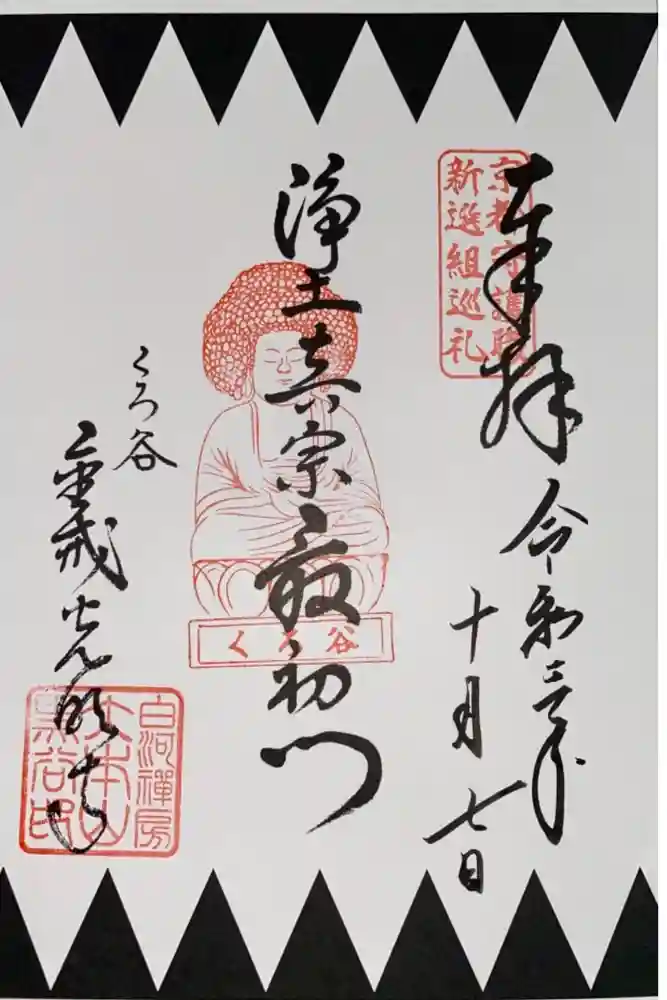 奉拝
京都守護職
新選組巡礼
令和三年
十月七日
浄土真宗最初門
くろ谷
くろ谷
金戒光明寺
白河禅房
大本山
黒谷印